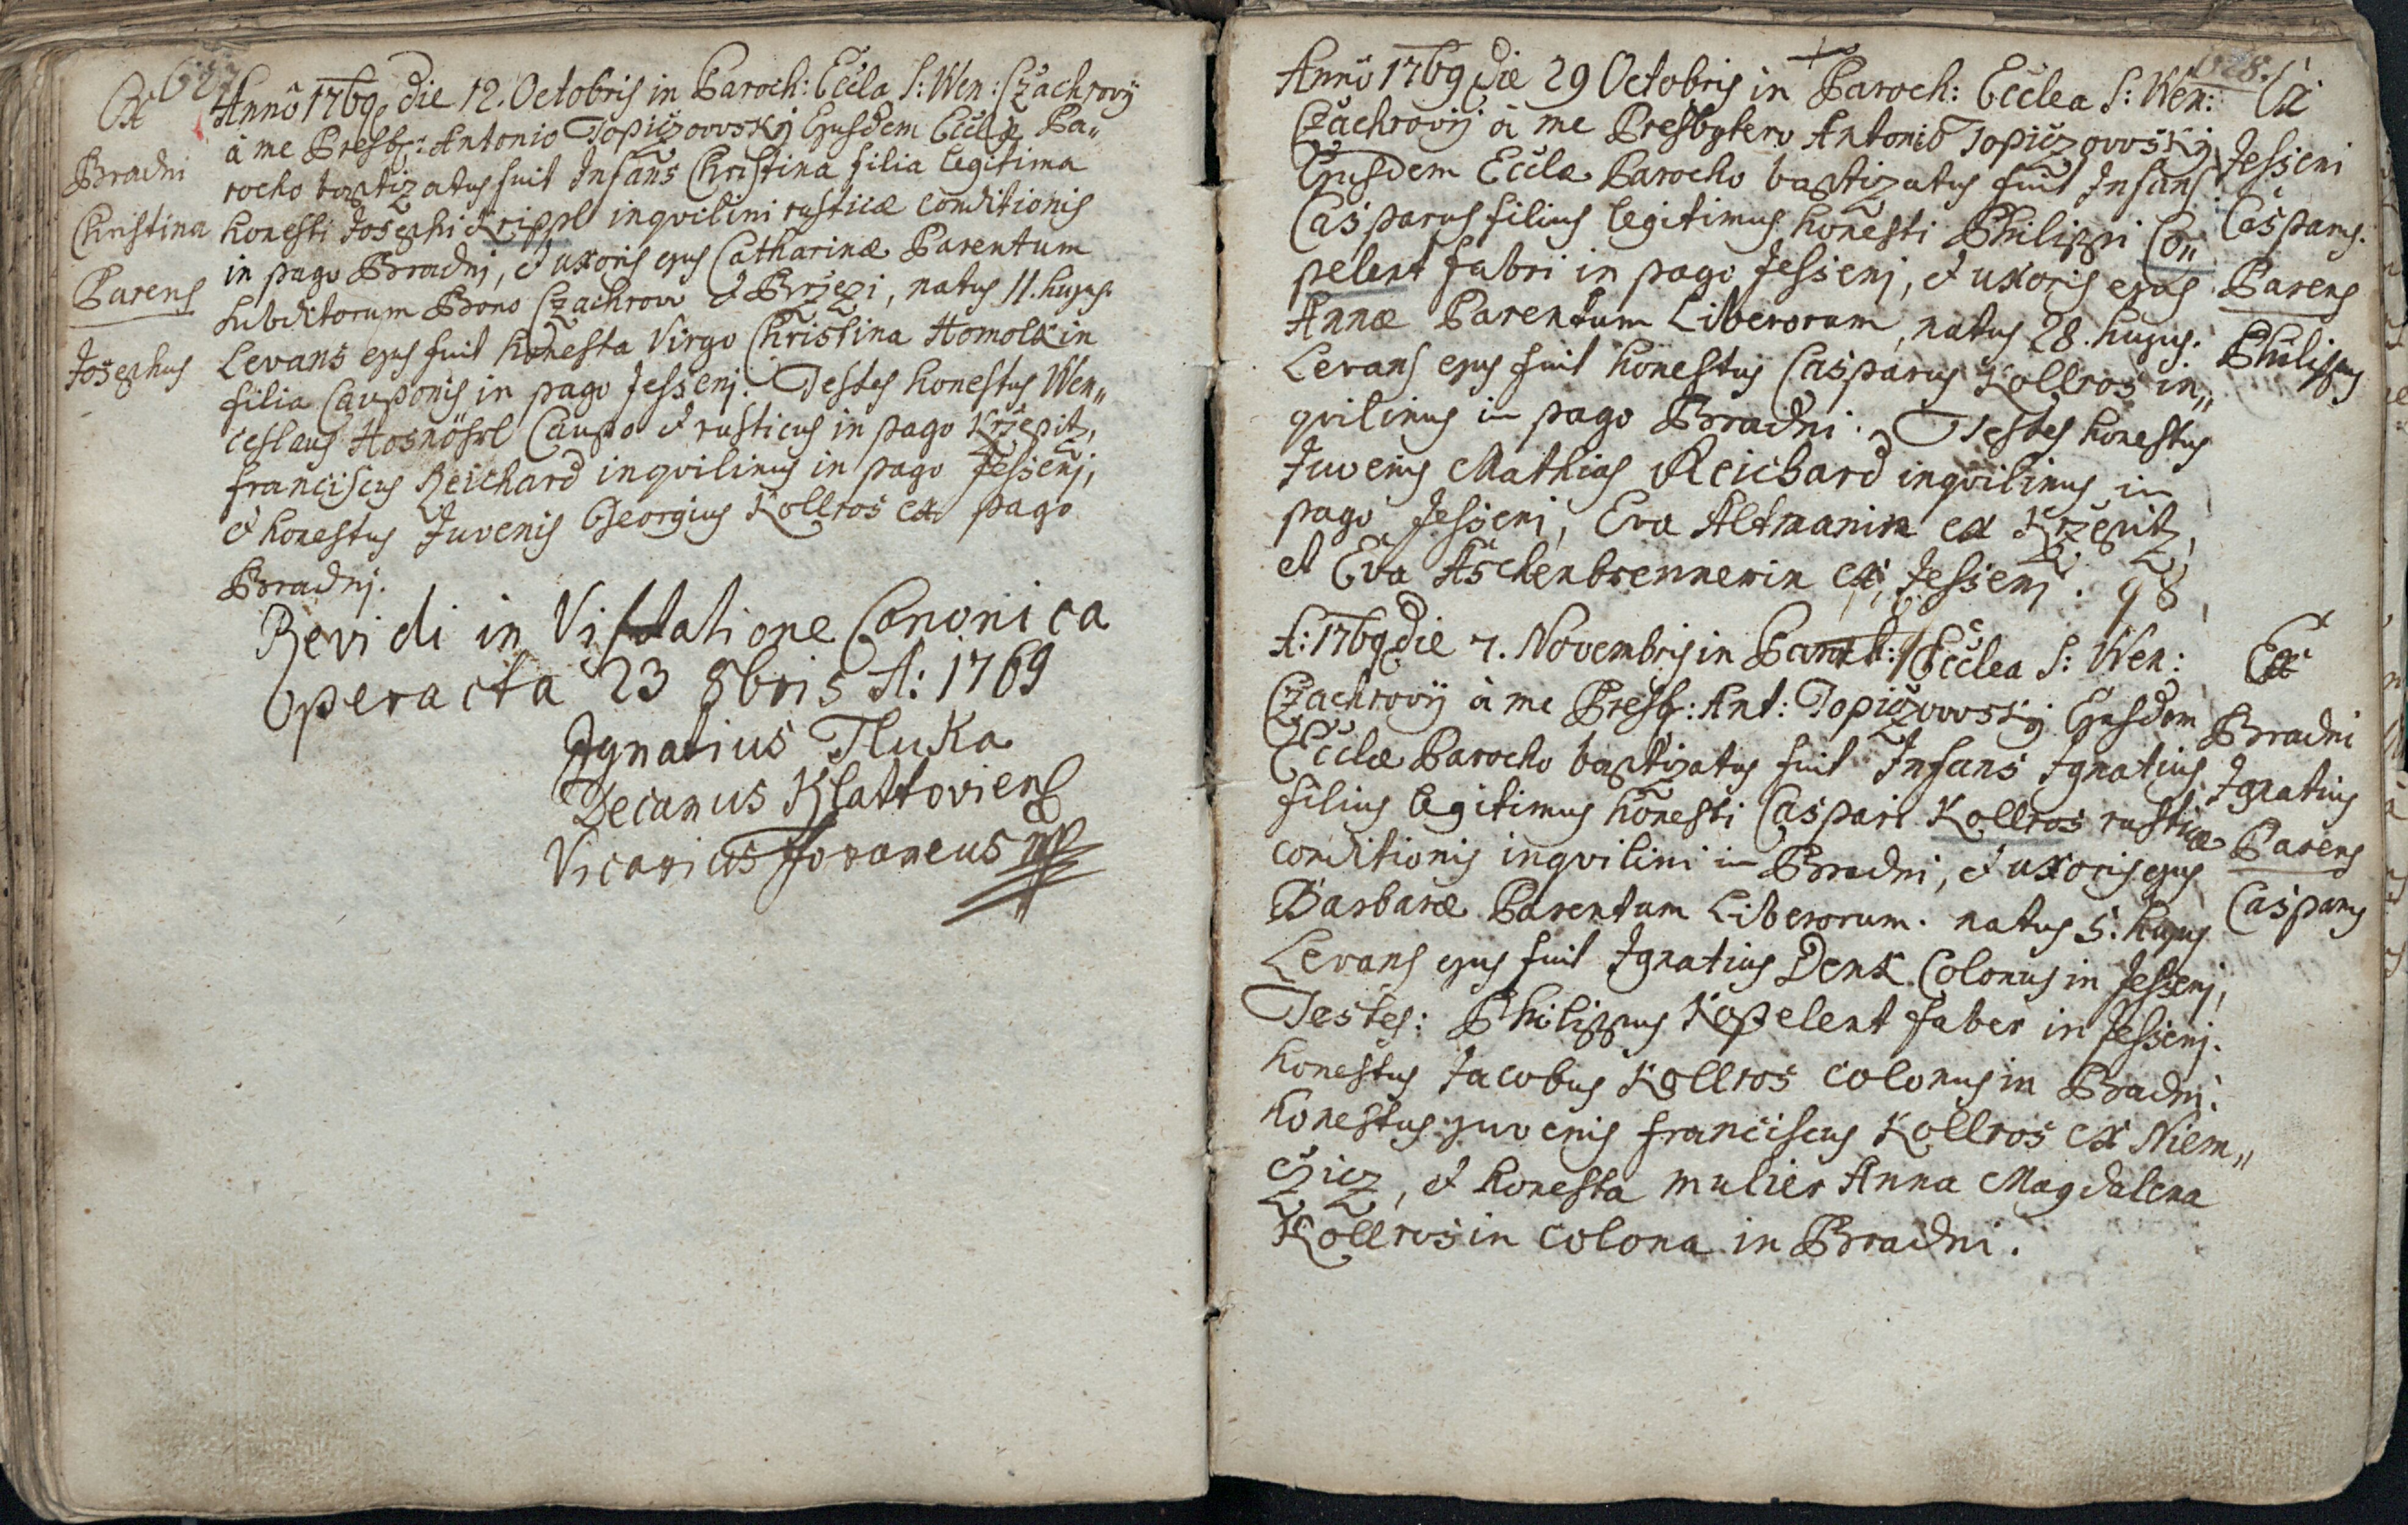 Ex
Bradni
Christina
Parens
Josephus
Annô 1769 die 12. Octobris in Paroch: Eccla S: Wen: Czachrovÿ
à me Presb: Antonio Topiczovvskÿ Ejusdem Ecclæ Pa„
rocho baptizatus fuit Infans Christina filia legitima
honesti Josephi Krippl inqvilini rusticæ conditionis
in pago Bradnj, et uxoris ejus Catharinæ Parentum
subditorum Bono Czachrow et Brzezi, natus 11. hujus.
Levans ejus fuit honesta Virgo Christina Homolkin
filia Cauponis in pago Jessenj. Testes honestus Wen„
ceslaus Hosnöhrl Caupo et rusticus in pago Krzepitz,
franciscus Reichard inqvilinus in pago Jessenj,
et honestus Juvenis Georgius Kollros ex pago
Bradnj.
Revidi in Visitatione Canonica
Operacta 23 8bris A: 1769
Ignatius Tluka
Decanus Klattoviens
Vicarius foraneus mp
628.
Annô 1769 die 29 Octobris in Paroch: Ecclea S: Wen:
Czachrovÿ à me Presbytero Antonio Topiczovvskÿ
Ejusdem Eccle Parocho baptizatus fuit Infans
Casparus filius legitimus honesti Philippi Co„
pelent fabri in pago Jessenj, et uxoris ejus
Annæ Parentum Liberorum, natus 28. hujus.
Levans ejus fuit honestus Casparus Kollros in„
qvilinus in pago Bradni. Testes honestus
Juvenis Mathias Reichard inqvilinus in
pago Jessenj, Eva Altmanin ex Krzepitz,
et Eva Aschenbrennerin ex Jessenj. 98
Ex
Jesseni
Casparus.
Parens
Philippus
A: 1769 die 7. Novembris in Paroch: Ecclea S: Wen:
Czachrovÿ à me Presb: Ant: Topiczovvskÿ Ejusdem
Ecclæ Parocho baptizatus fuit Infans Ignatius
filius legitimus honesti Caspari Kollros rusticæ
conditionis inqvilini in Bradni, et uxoris ejus
Barbaræ Parentum Liberorum. natus 5. hujus
Levans ejus fuit Ignatius Denk Colonus in Jessenj,
Testes: Philippus Kopelent faber in Jessenj.
honestus Jacobus Kollros colonus in Bradni.
honestus juvenis franciscus Kollros ex Niem„
czicz, et honesta mulier Anna Magdalena
Kollrosin colona in Bradni.
Ex
Bradni
Ignatius
Parens
Casparus